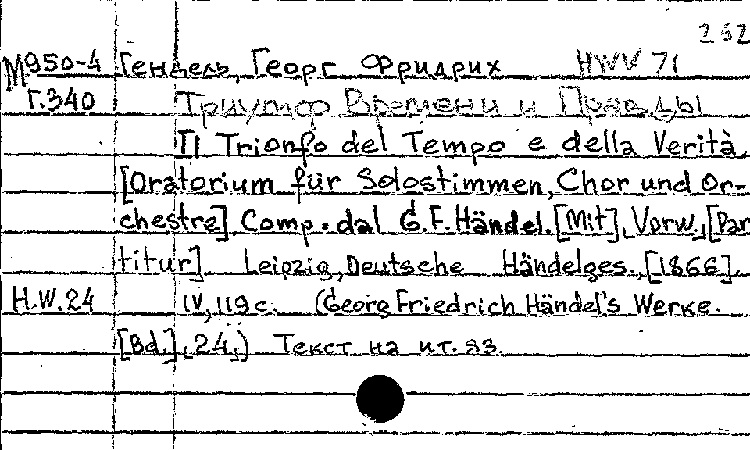 252
М950-4 Гендель, Георг Фридрих HWV 71
Г.340 Триумф Времени и Правды
Il Trionfo del Tempo e della Verità
[Oratorium für Solostimmen, Chor und Or-
chestre] Comp. dal G.F. Händel. [Mit] Vorw., [Par
titur]. Leipzig, Deutsche Händelges., [1866].
H.W.24 IV, 119 с. (Georg Friedrich Händel's Werke.
[Bd.], 24.) Текст на ит. яз.